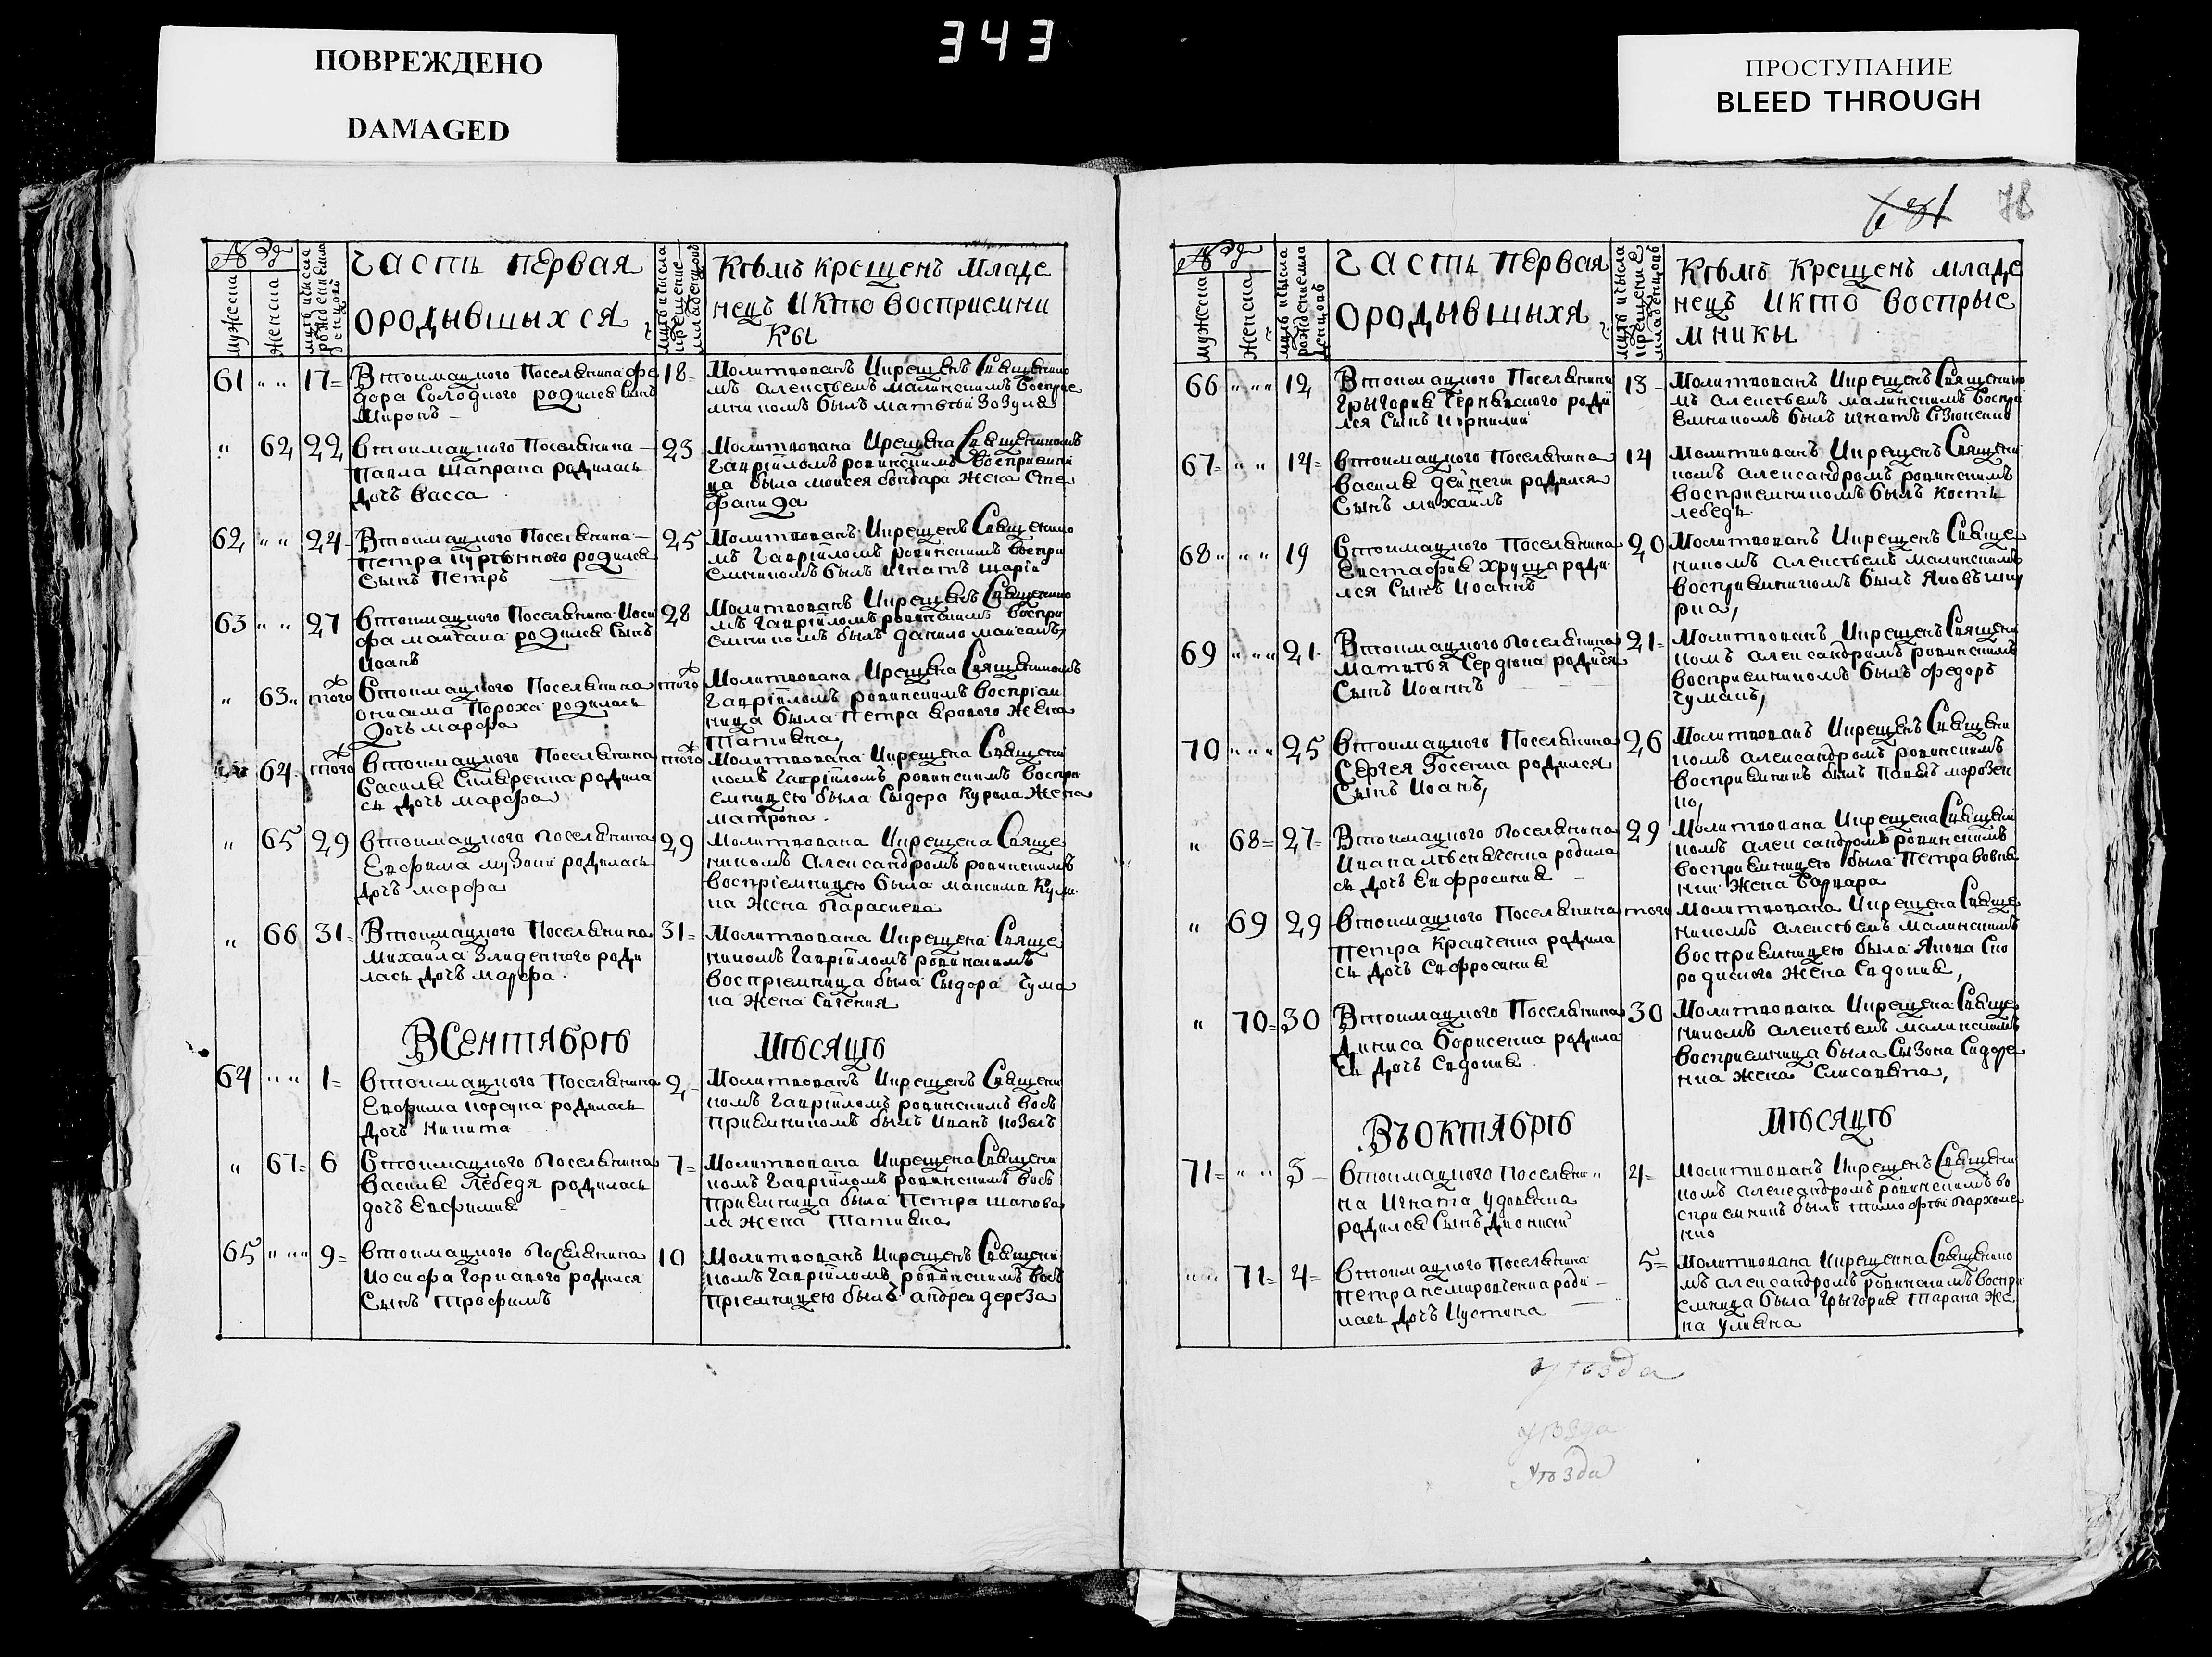 343
ПОВРЕЖДЕНО
DAMAGED
ПРОСТУПАНИЕ
BLEED THROUGH
№
мужеска
женска
часть первая
ородывшыхся
Кѣмъ крещенъ младе
нецъ икто восприемни
кы
61 " " 17= Втоимацкого Поселянина фе
дора Солодкого родился Сынъ
Миронъ
18= Молитвованъ Икрещенъ Священнико
мъ алексѣемъ малинскимъ восприе
мникомъ былъ матвѣй Зозуля
" 62 22 втоимацкого Поселянина
Павла Шапрана родилась
дочь Васса
23 Молитвована Крещена Священникомъ
Гавріиломъ ровинскимъ восприемни
ца была моисея бондара жена Сте
фанида
62 " " 24 Втоимацкого Поселянина
Петра родился
Сынъ Петръ
25 Молитвованъ Икрещенъ Священнико
мъ Гавріиломъ ровинскимъ воспри
емникомъ былъ игнатъ шарій
63 " " 27 втоимацкого Поселянина Иоси
фа родился Сынъ
Иоанъ
28 Молитвованъ Икрещенъ Священнико
мъ Гавріиломъ ровинскимъ воспри
емникомъ былъ данило
" 63 " того втоимацкого Поселянина
онисима Пороха родилась
Дочь марфа
того Молитвована Крещена Священникомъ
Гавріиломъ ровинскимъ воспріем
ница была Петра жена
Татияна,
64 того втоимацкого Поселянина
Василя родила
сь дочь марфа
того Молитвована Икрещена Священни
комъ гавріиломъ ровинскимъ воспри
емницею была Сыдора Жена
матрона.
" 65 29 втоимацкого поселянина
Евфима музики родилась
дочь марфа
29 Молитвована Икрещена Свяще
никомъ Александромъ ровинскимъ
воспріемницею была максима
на Жена Параскева
" 66 31= Втоимацкого Поселянина
Михаила Злиденного роди
лась дочь марфа.
31= Молитвована Икрещена Свяще
никомъ Гавріиломъ ровинскимъ
воспріемница была Сыдора Чума
ка Жена Евгения
ВСЕНТЯБРѢ МѢСЯЦѢ
64 " " 1= втоимацкого Поселянина
Евфима корсуна родилась
дочь Никита
2 Молитвованъ Икрещенъ Священи
комъ Гавріиломъ ровинскимъ вось
приемникомъ былъ Иванъ козелъ
" 67= 6 втоимацкого поселянина
василя Лебедя родилась
дочь Евфимия
7= Молитвована Икрещена Священи
комъ Гавріиломъ ровинскимъ вось
приемница была Петра шапова
ла жена Татияна
65 " " " 9= втоимацкого поселянина
Иосифа Горкавого родился
Сынъ Трофимъ
10 Молитвованъ Икрещенъ Священи
комъ Гавріиломъ ровинскимъ вось
пріемницею былъ андреи дереза
78
№
мужеска
женска
часть первая
ородывшыхя
Кѣмъ крещенъ младе
нецъ икто воспрые
мникы
66 " " " 12 Втоимацкого Поселянина
Грыгория Чернявского роди
лся Сынъ Корнилий
13 Молитвованъ Икрещенъ Священнико
мъ алексѣемъ малинскимъ воспри
емникомъ былъ игнатъ
67= " " 14= втоимацкого Поселянина
василя дейнеги родился
Сынъ михаилъ
14 Молитвованъ Икрещенъ Священи
комъ александромъ ровинскимъ
восприемникомъ былъ кость
лебедь
68 " " " 19 втоимацкого Поселянина
Евстафия Хруща роди
лся Сынъ Иоаннъ
20 Молитвованъ Икрещенъ Свяще
никомъ алексѣемъ малинскимъ
восприемникомъ былъ Яковъ
рка,
69 " " " 21 Втоимацкого Поселянина
матвѣя Сердюка родився
Сынъ Иоаннъ
21= Молитвованъ Икрещенъ Священи
комъ александромъ ровинскимъ
восприемникомъ былъ федоръ
Чумакъ,
70 " " " 25 втоимацкого Поселянина
Сергея Зосенка родился
Сынъ Иоанъ,
26 Молитвованъ Икрещенъ Священи
комъ александромъ ровинскимъ
восприемникъ былъ Павелъ морозен
ко,
" 68= 27= Втоимацкого поселянина
Ивана родила
сь дочь Ефросиния
29 Молитвована Икрещена Священи
комъ александромъ ровинскимъ
восприемницею была Петра
Жена варвара
" 69 29 втоимацкого Поселянина
Петра Кравченка родила
сь дочь Ефросиния
того Молитвована Икрещена Свяще
никомъ алексѣемъ малинскимъ
восприемницею была Якова Ско
родиного Жена Евдокия,
" 70= 30 Втоимацкого Поселянина
Диниса борисенка родила
сь дочь Евдокия
30 Молитвована Икрещена Свяще
никомъ алексѣемъ малинскимъ
восприемница была Сызона Сидоре
нка жена Елисавета,
ВЪОКТЯБРѢ МѢСЯЦѢ
71= " " 3 втоимацкого поселяни
на Игната Удовкина
родился Сынъ дионисий
4= Молитвованъ Икрещенъ Священи
комъ александромъ ровинскимъ во
сприемникъ былъ тимофей пархоме
нко
" " 71= 4= втоимацкого Поселянина
Петра немировченка роди
лась дочь Иустина
5= Молитвована Икрещенна Священико
мъ александромъ ровинскимъ воспри
емница была Грыгория Тарана Же
на Улияна
уѣзда
уѣзда
уѣзда